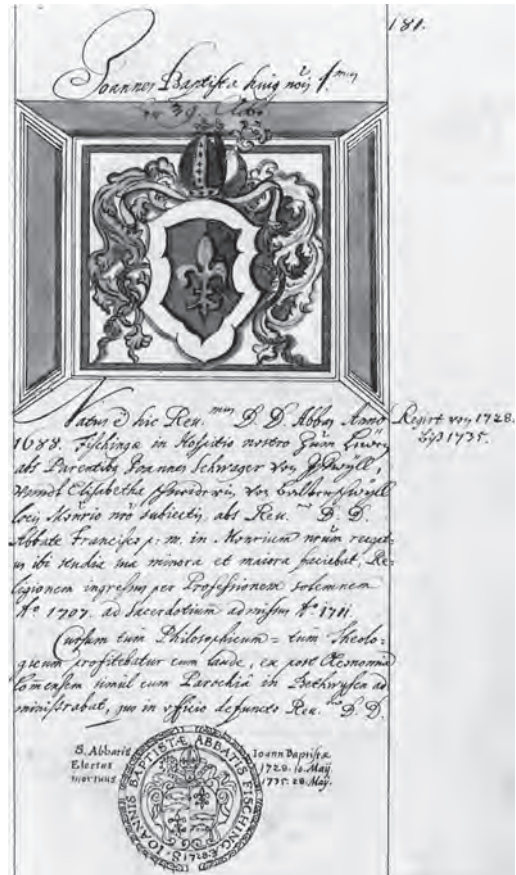 181.
Joannes Baptista huig nois 1.mus
39. Abbas
Natus e hic Reu.mus D. D. Abbas Anno
1688. Fischingæ in Hospitio nostro Zum Lewen
abs Parentibq Joannes Schwager von
Elisabetha von
locis Mōnrio nrō subiectis, abs Reu.mo D. D.
Abbate Francisco p. m. in Monrium nrum recept-
us ibi studia sua minora et maiora faciebat, Re-
ligionem ingressus per Professionem solemnem
Aº 1707. ad Sacerdotium admissus Aº 1711.
Cursum tum Philosophicum = tum Theolo-
gicum profitebatur cum laude, ex post Oeconomia
Lomensem simul cum Parochia in Bethwysen ad
ministrabat, quo in officio defuncto Reu.mo D. D.
Regirt von 1728.
biß 1735.
S. Abbatis Ioann Baptistæ
Electus 1728. 10. Maÿ.
mortuus 1735. 28. Maÿ.
S. IOANNIS BAPTISTÆ ABBATIS FISCHINGÆ
1728